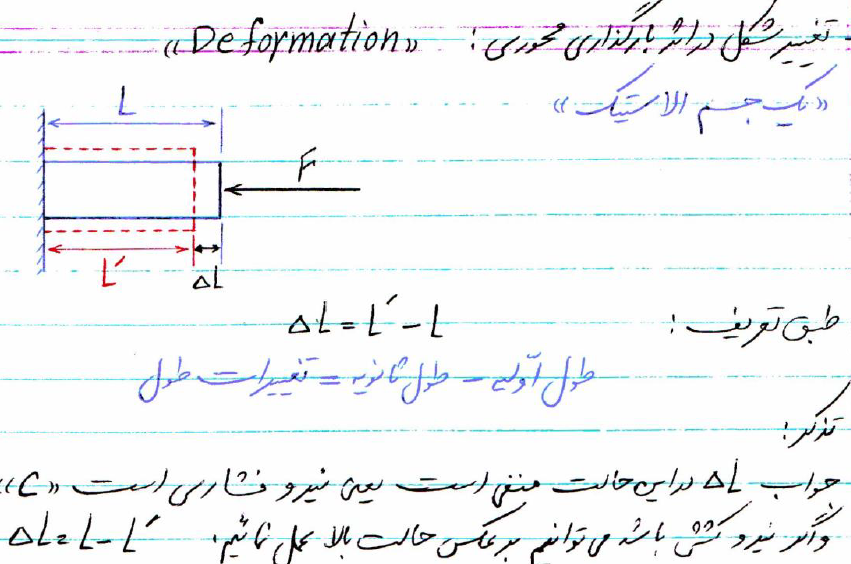 - تغییر شکل در اثر بارگذاری محوری: «Deformation»
«یک جسم الاستیک»
L
F
L′
ΔL
طبق تعریف: ΔL = L′ - L
طول اولیه - طول ثانویه = تغییرات طول
تذکر:
جواب ΔL در این حالت منفی است یعنی نیرو فشاری است «C»
واگر نیرو کششی باشد می توانیم برعکس حالت بالا عمل نمائیم. ΔL = L - L′